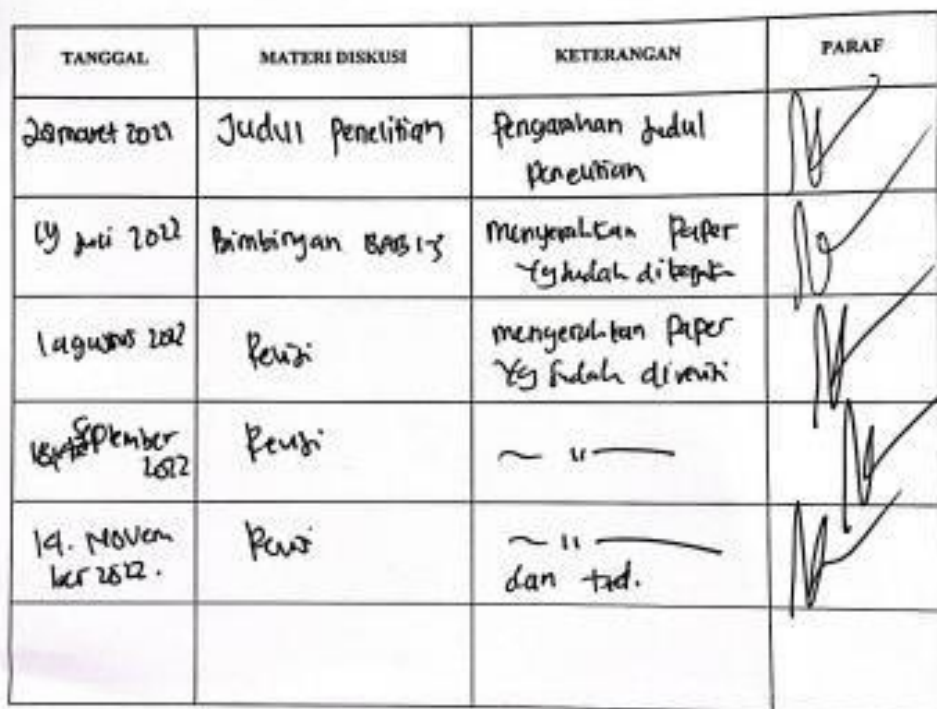 TANGGAL MATERI DISKUSI KETERANGAN PARAF
28 maret 2022 Judul Penelitian Pengarahan Judul
Penelitian
Juli 2022 Bimbingan BAB 1-3 menyerahkan Paper
Yg sudah
1 agustus 2022 Revisi menyerahkan Paper
Yg sudah direvisi
September
2022 Revisi ~ " —
14. Novem
ber 2022. Revisi ~ " —
dan